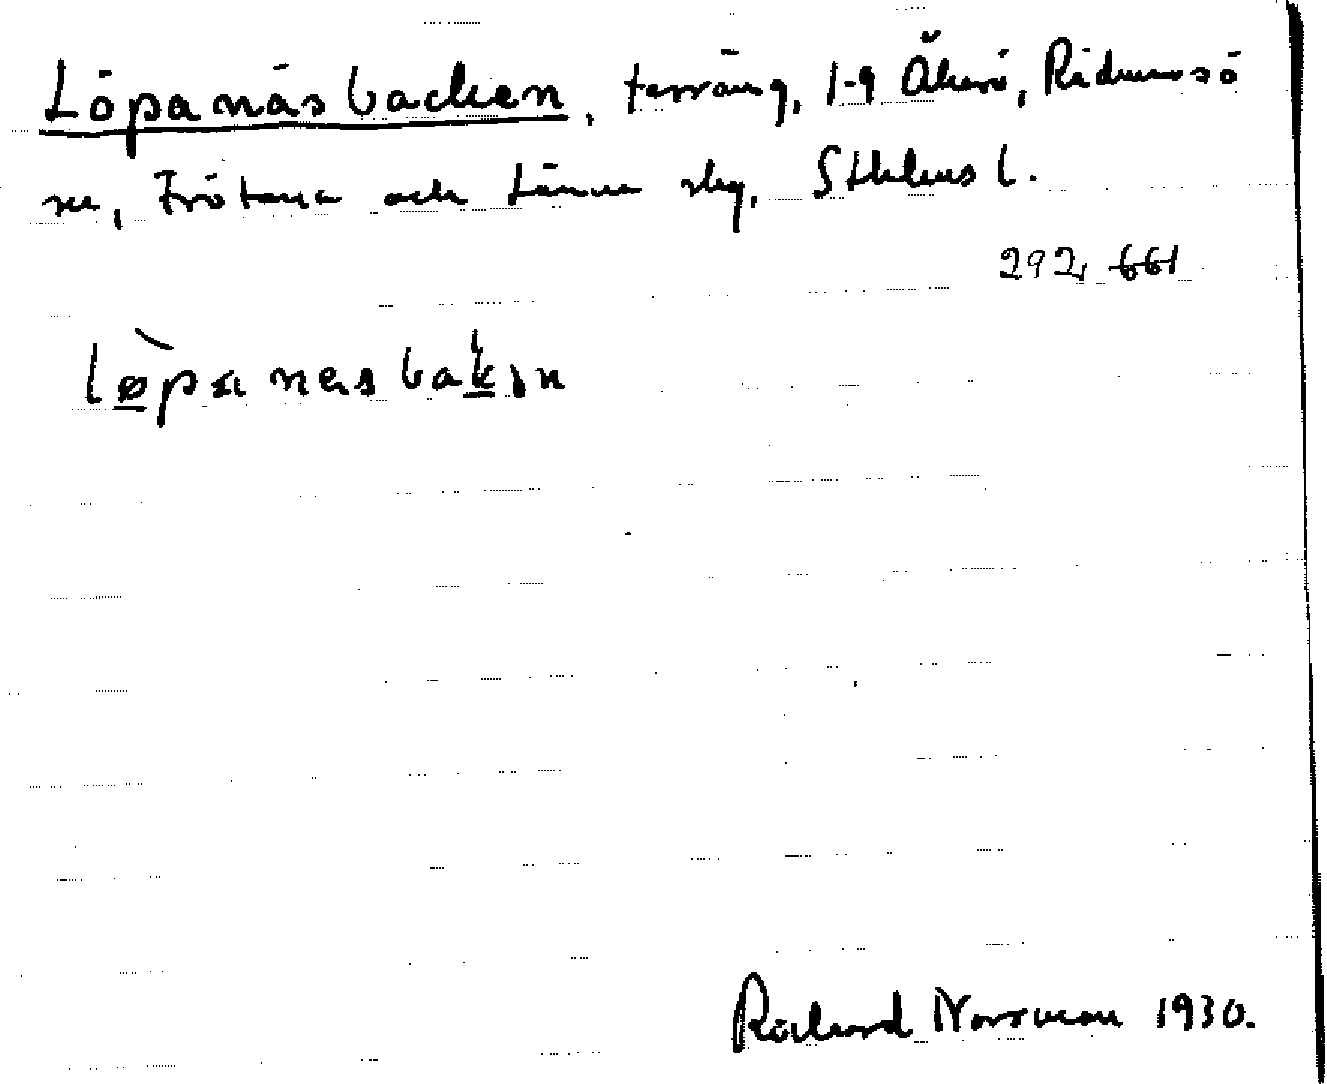 Löpanäsbacken, terräng, 1-9 Åkerö, Rådmansö
sn, Frötuna och Länna skg, Sthlms l.
292, 661
lø̀panɛsbakın
Rickard Norrman 1930.